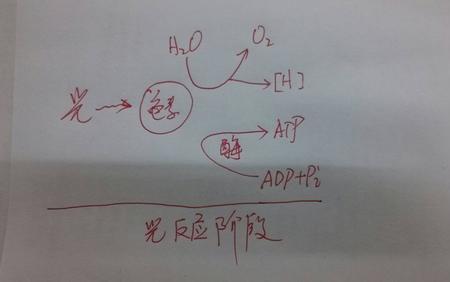 H₂O O₂
[H]
光 色素
酶 ATP
ADP+Pi
光反应阶段